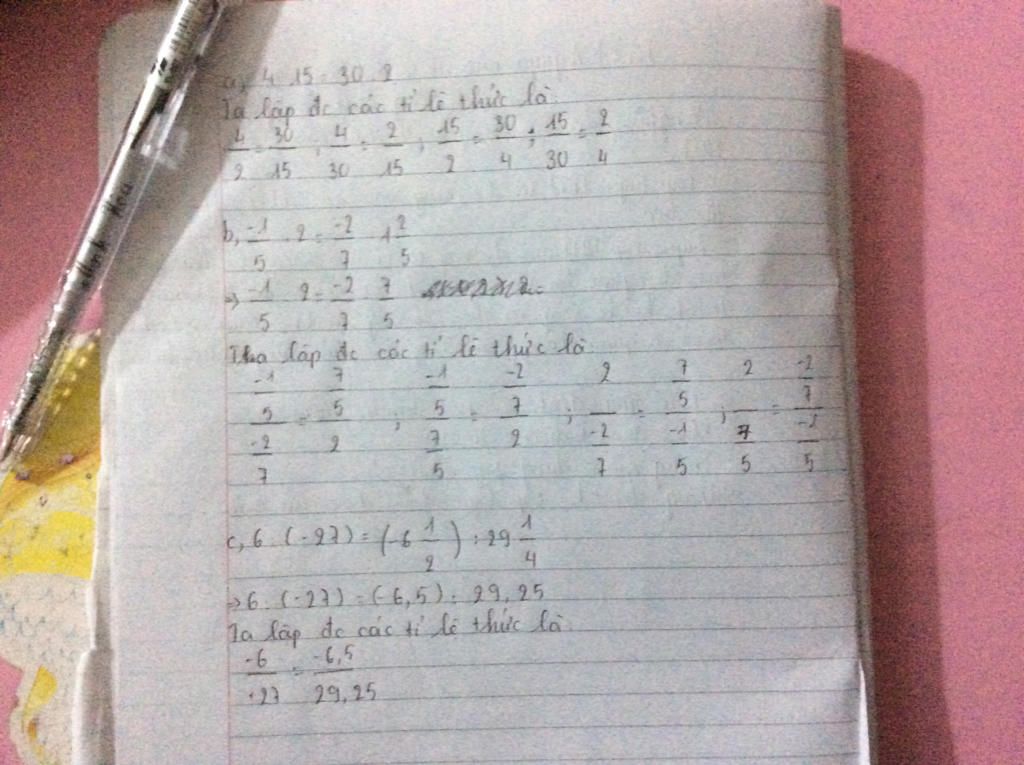 a, 4 . 15 = 30 . 2
Ta lập đc các tỉ lệ thức là:
4/2 = 30/15 ; 4/30 = 2/15 ; 15/2 = 30/4 ; 15/30 = 2/4
b, -1/5 . 2 = -2/7 . 1 2/5
=> -1/5 . 2 = -2/7 . 7/5
Ta lập đc các tỉ lệ thức là
-1/5 / -2/7 = 7/5 / 2 ; -1/5 / 7/5 = -2/7 / 2 ; 2 / -2/7 = 7/5 / -1/5 ; 2 / 7/5 = -2/7 / -1/5
c, 6 . (-27) = (-6 1/2) . 29 1/4
=> 6 . (-27) = (-6,5) . 29,25
Ta lập đc các tỉ lệ thức là:
-6/-27 = -6,5/29,25